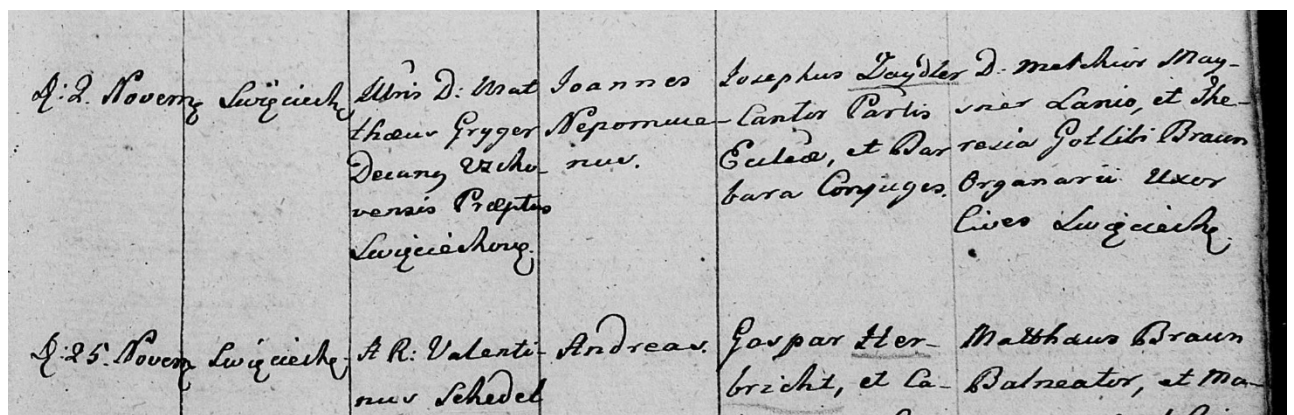 D: 2. Novem Swięciech
Illris D: Mat
thæus Gryger
Decan9 Vscho-
vensis Præptus
Swięciechov.
Joannes
Nepomuce-
nus.
Josephus Zaydler
Cantor Parlis
Eccleæ, et Bar
bara Conjuges.
D: Melchior May-
sner Lanio, et The-
resia Gottlibi Braun
Organarii Uxor
Cives Swięciech.
D: 25. Novem Swięciech.
A R: Valenti-
nus Schedel
Andreas.
Gaspar Her-
bricht, et Ca-
Matthæus Braun
Balneator, et Ma-